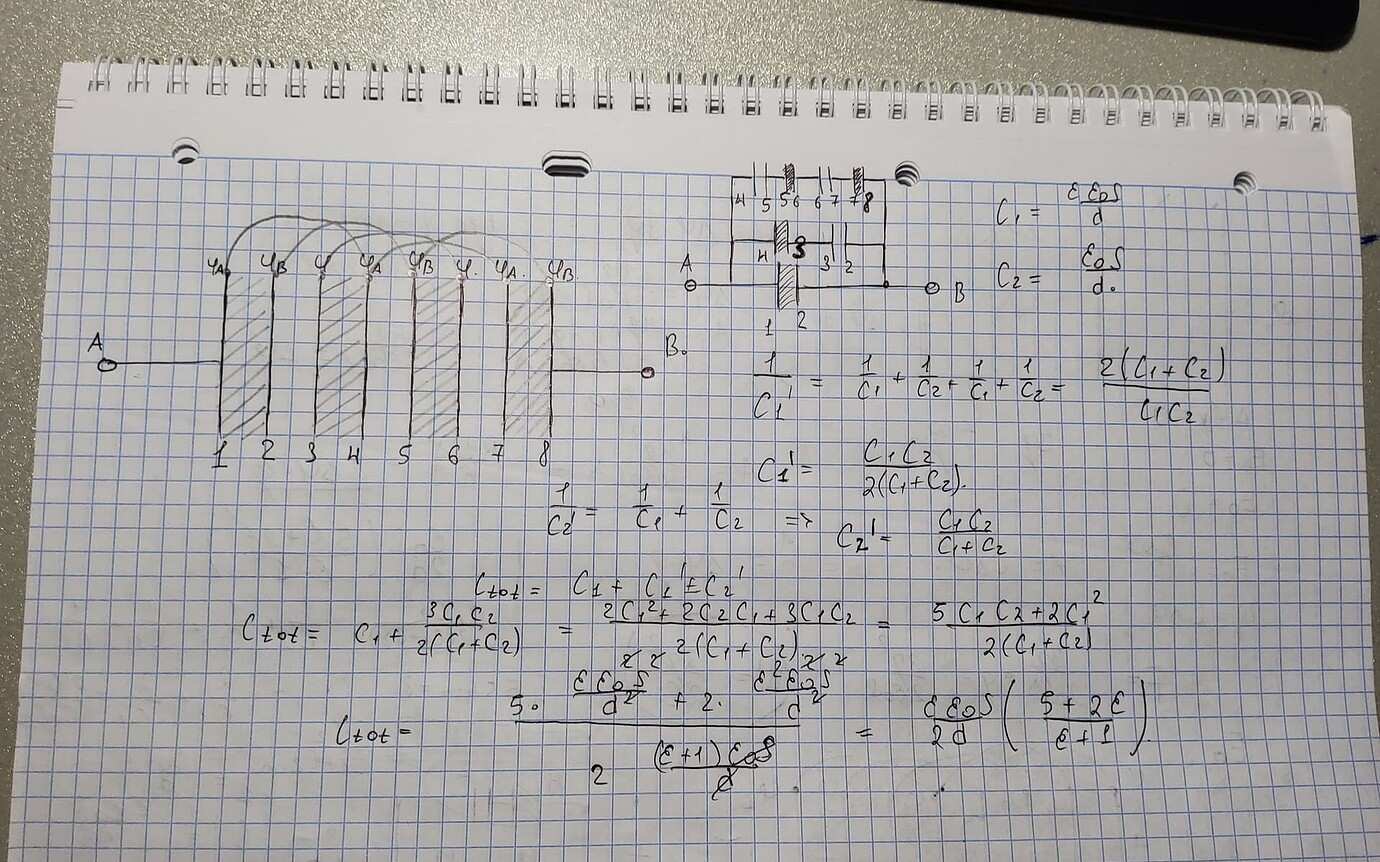 φA φB φ φA φB φ. φA. φB.
A
B.
1 2 3 4 5 6 7 8
4 5 5 6 6 7 7 8
4 3 3 2
A B
1 2
C₁ = εε₀S/d
C₂ = ε₀S/d.
1/C₁' = 1/C₁ + 1/C₂ + 1/C₁ + 1/C₂ = 2(C₁+C₂)/C₁C₂
C₁' = C₁C₂/2(C₁+C₂).
1/C₂' = 1/C₁ + 1/C₂ => C₂' = C₁C₂/C₁+C₂
Ctot = C₁ + C₁' + C₂'
Ctot = C₁ + 3C₁C₂/2(C₁+C₂) = 2C₁²+2C₂C₁+3C₁C₂/2(C₁+C₂) = 5C₁C₂+2C₁²/2(C₁+C₂)
Ctot = 5·εε₀²S²/d² + 2·ε²ε₀²S²/d² / 2(ε+1)ε₀S/d = εε₀S/2d (5+2ε/ε+1).